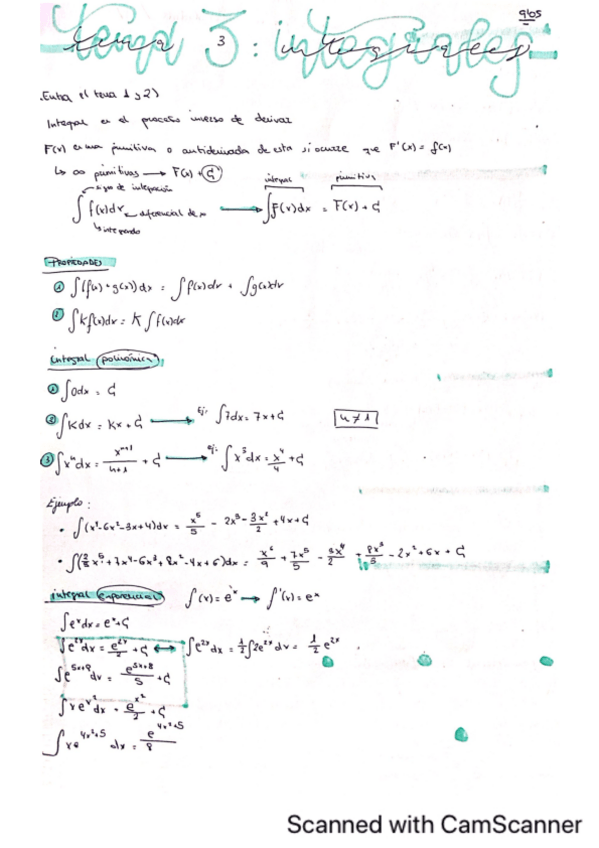 9'05
tema 3: integrales
3
.Entra el tema 1 y 2)
Integral es el proceso inverso de derivar
F(x) es una primitiva o antiderivada de esta si ocurre que F'(x) = f(x)
↳ ∞ primitivas → F(x) + C
signo de integración
integral
primitiva
∫ f(x)dx ← diferencial de x → ∫ F(x)dx = F(x) + C
↳ integrando
PROPIEDADES
① ∫(f(x) + g(x)) dx = ∫ f(x)dx + ∫ g(x)dx
② ∫ K f(x)dx = K ∫ f(x)dx
integral (polinómica)
① ∫ 0dx = C
② ∫ K dx = Kx + C → ej: ∫ 7dx = 7x + C
n ≠ 1
③ ∫ xⁿ dx = xⁿ⁺¹/n+1 + C → ej: ∫ x³ dx = x⁴/4 + C
Ejemplo:
· 4x + C
· - 2x² + 6x + C
integral (exponencial) f(x) = eˣ → f'(x) = eˣ
∫ eˣ dx = eˣ + C
∫ e²ˣ dx = e²ˣ/2 + C ↔ ∫ e²ˣ dx = 1/2 ∫ 2e²ˣ dx = 1/2 e²ˣ
dx = e⁵ˣ⁺⁸/5 + C
∫ x eˣ² dx = eˣ²/2 + C
∫ x e⁴ˣ²⁺⁵ dx = e⁴ˣ²⁺⁵/8
Scanned with CamScanner